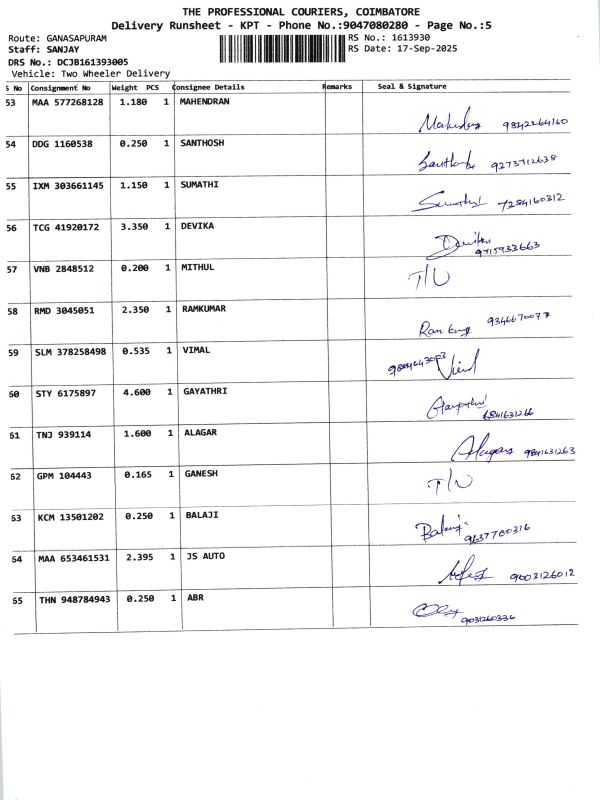 THE PROFESSIONAL COURIERS, COIMBATORE
Delivery Runsheet - KPT - Phone No.:9047080280 - Page No.:5
Route: GANASAPURAM RS No.: 1613930
Staff: SANJAY RS Date: 17-Sep-2025
DRS No.: DCJB161393005
Vehicle: Two Wheeler Delivery
S No Consignment No Weight PCS Consignee Details Remarks Seal & Signature
53 MAA 577268128 1.180 1 MAHENDRAN
9842264160
54 DDG 1160538 0.250 1 SANTHOSH
9273712638
55 IXM 303661145 1.150 1 SUMATHI
Sumathi 7284160312
56 TCG 41920172 3.350 1 DEVIKA
9715933663
57 VNB 2848512 0.200 1 MITHUL
58 RMD 3045051 2.350 1 RAMKUMAR
9346670077
59 SLM 378258498 0.535 1 VIMAL
60 STY 6175897 4.600 1 GAYATHRI
6841631266
61 TNJ 939114 1.600 1 ALAGAR
9841631263
62 GPM 104443 0.165 1 GANESH
63 KCM 13501202 0.250 1 BALAJI
Balaji 9637760316
64 MAA 653461531 2.395 1 JS AUTO
9003126012
65 THN 948784943 0.250 1 ABR
9031260336